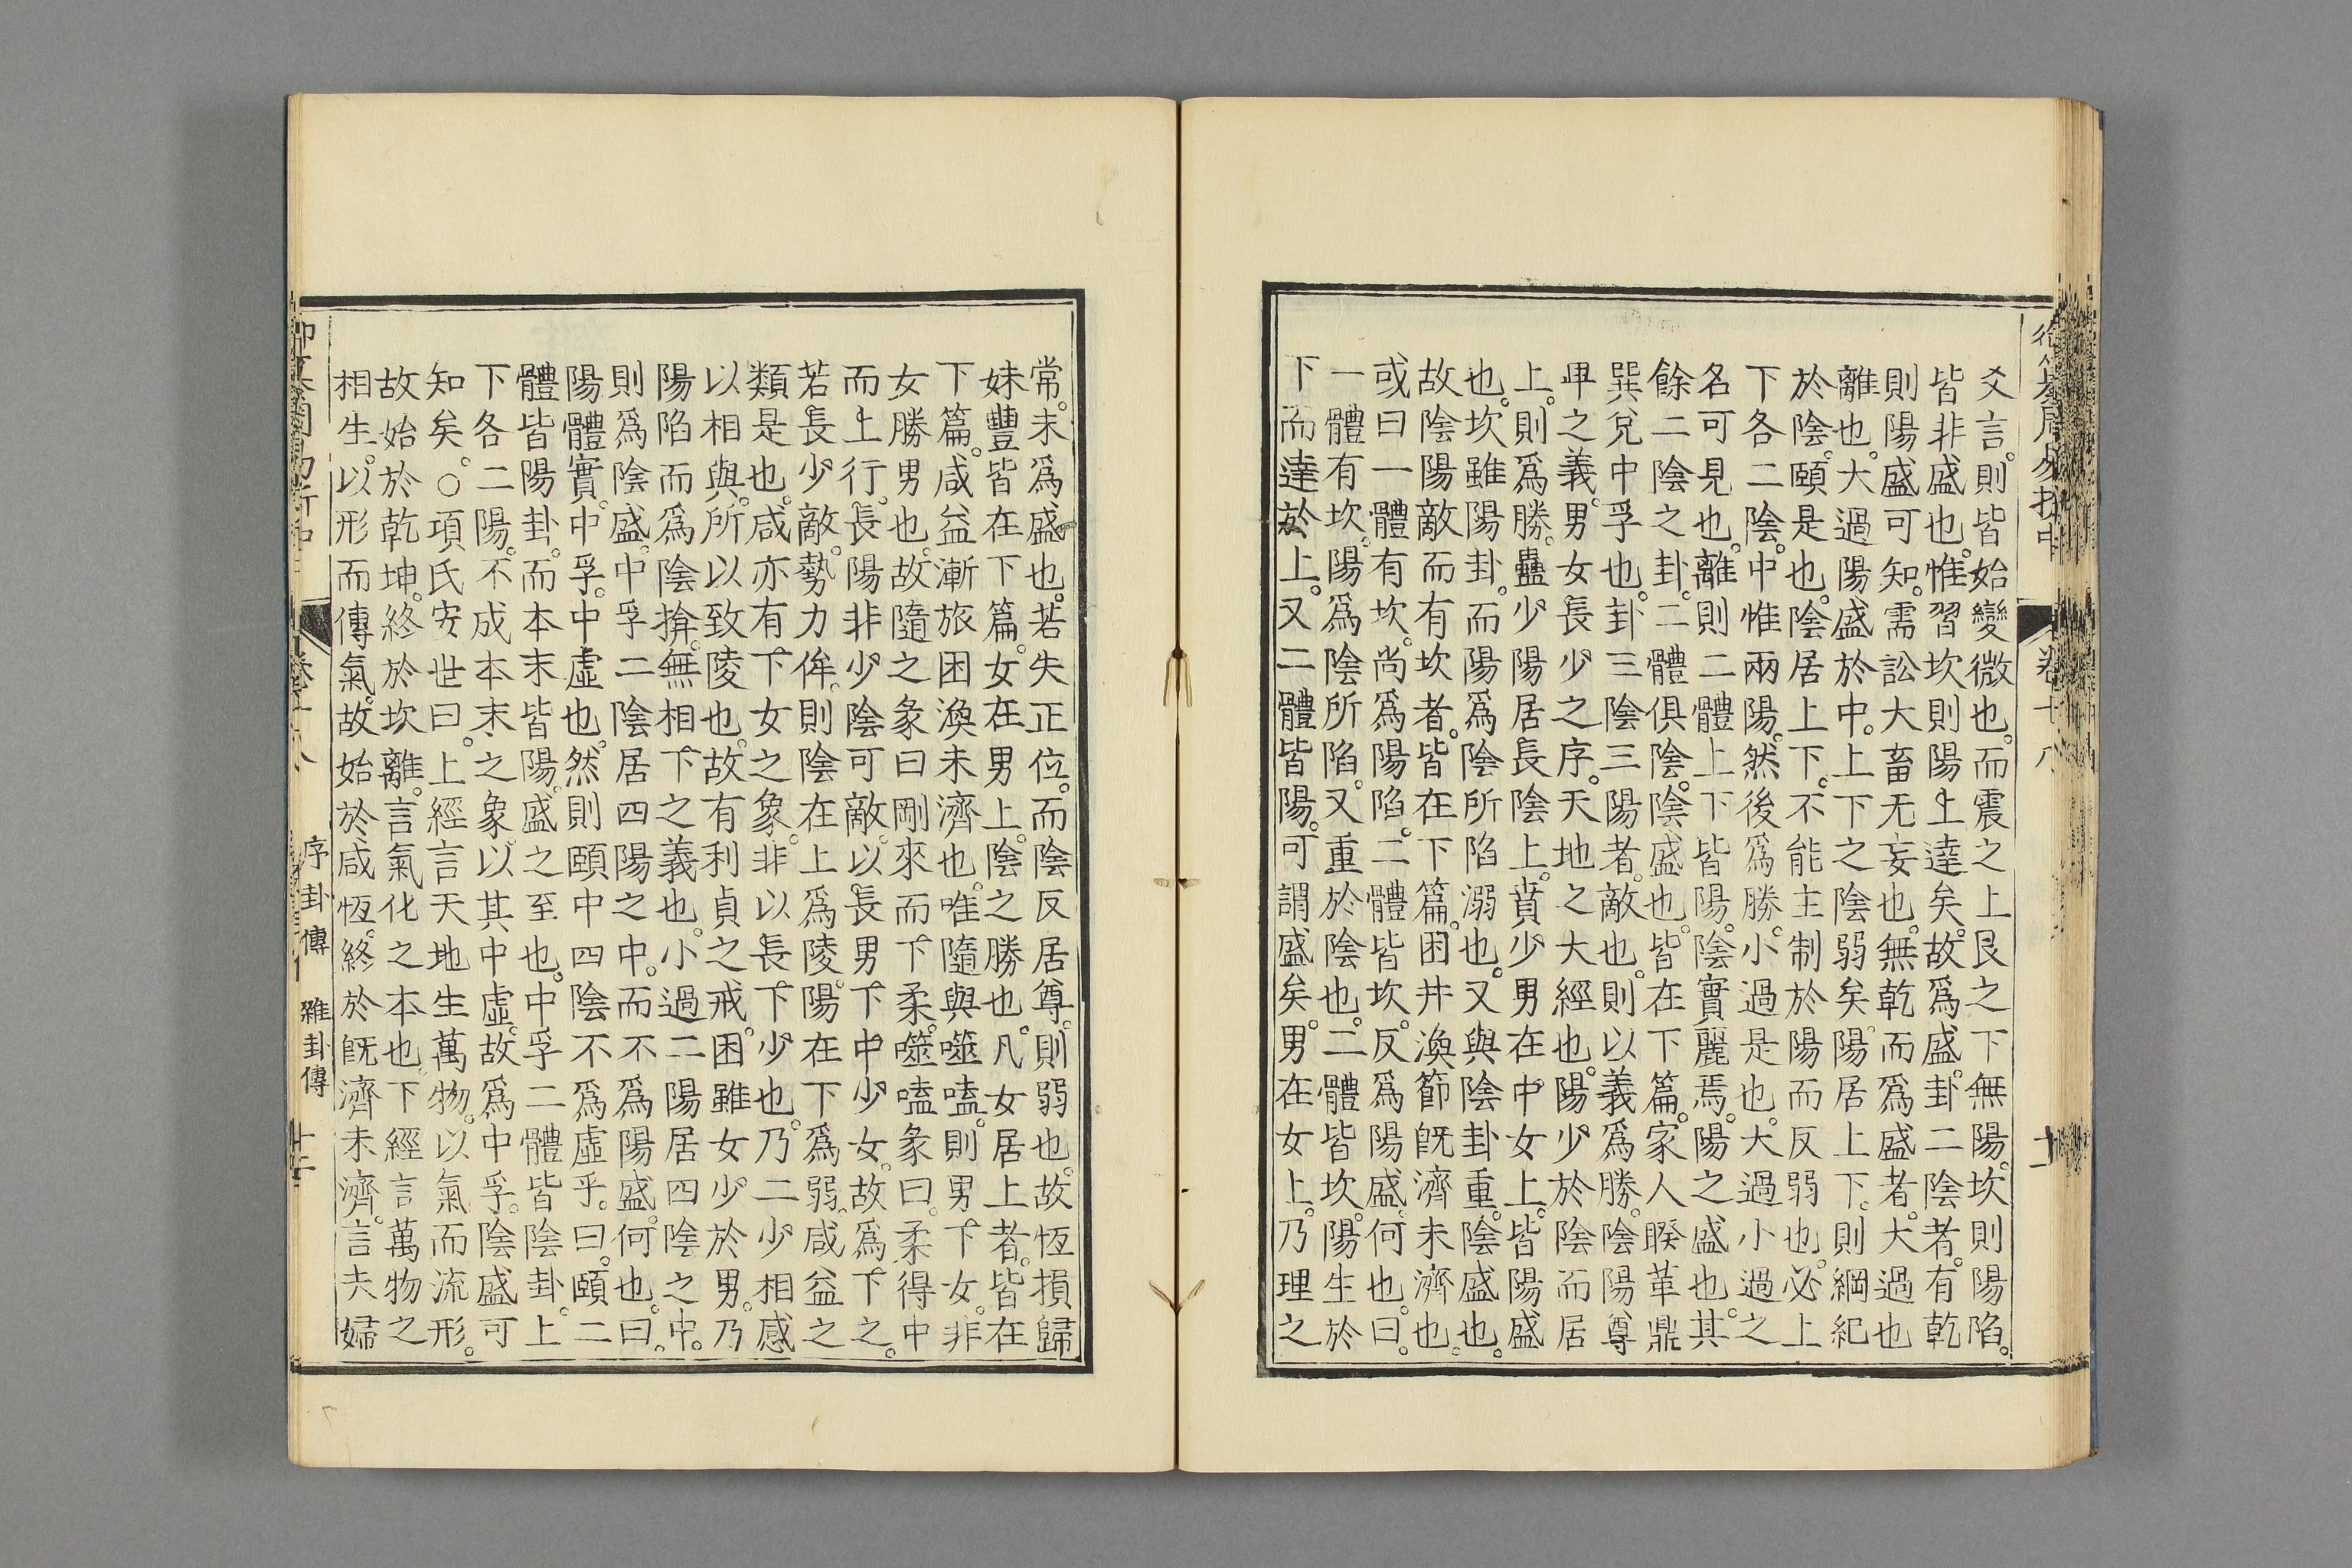 爻言。則皆始變微也。而震之上艮之下無陽。坎則陽陷。
皆非盛也。惟習坎則陽上達矣。故爲盛。卦二陰者。有乾
則陽盛可知。需訟大畜无妄也。無乾而爲盛者。大過也
離也。大過陽盛於中。上下之陰弱矣。陽居上下。則綱紀
於陰。頤是也。陰居上下。不能主制於陽而反弱也。必上
下各二陰。中惟兩陽。然後爲勝。小過是也。大過小過之
名可見也。離則二體上下皆陽。陰實麗焉。陽之盛也。其
餘二陰之卦。二體俱陰。陰盛也。皆在下篇。家人睽革鼎
巽兌中孚也。卦三陰三陽者。敵也。則以義爲勝。陰陽尊
卑之義。男女長少之序。天地之大經也。陽少於陰而居
上。則爲勝。蠱少陽居長陰上。賁少男在中女上。皆陽盛
也。坎雖陽卦。而陽爲陰所陷溺也。又與陰卦重。陰盛也。
故陰陽敵而有坎者。皆在下篇。困井渙節旣濟未濟也。
或曰一體有坎。尚爲陽陷。二體皆坎。反爲陽盛。何也。曰。
一體有坎。陽爲陰所陷。又重於陰也。二體皆坎。陽生於
下而達於上。又二體皆陽。可謂盛矣。男在女上。乃理之
卷十八
常。未爲盛也。若失正位。而陰反居尊。則弱也。故恆損歸
妹豐皆在下篇。女在男上。陰之勝也。凡女居上者。皆在
下篇。咸益漸旅困渙未濟也。唯隨與噬嗑。則男下女。非
女勝男也。故隨之彖曰剛來而下柔。噬嗑彖曰。柔得中
而上行。長陽非少陰可敵。以長男下中少女。故爲下之。
若長少敵。勢力侔。則陰在上爲陵。陽在下爲弱。咸益之
類是也。咸亦有下女之象。非以長下少也。乃二少相感
以相與。所以致陵也。故有利貞之戒。困雖女少於男。乃
陽陷而爲陰揜。無相下之義也。小過二陽居四陰之中。
則爲陰盛。中孚二陰居四陽之中。而不爲陽盛。何也。曰。
陽體實。中孚。中虛也。然則頤中四陰不爲虛乎。曰。頤二
體皆陽卦。而本末皆陽。盛之至也。中孚二體皆陰卦。上
下各二陽。不成本末之象。以其中虛。故爲中孚。陰盛可
知矣。○項氏安世曰。上經言天地生萬物。以氣而流形。
故始於乾坤。終於坎離。言氣化之本也。下經言萬物之
相生。以形而傳氣。故始於咸恆。終於旣濟未濟。言夫婦
序卦傳 雜卦傳